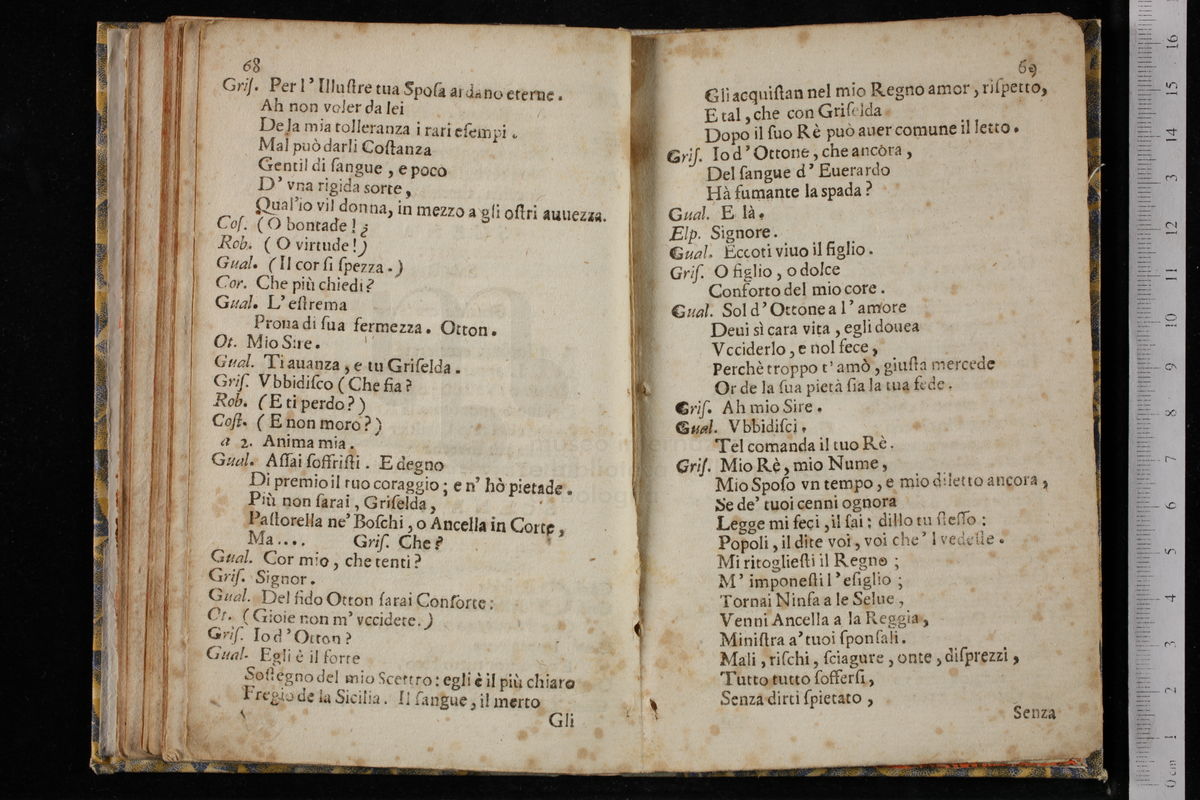 68
Griſ. Per l' Illuſtre tua Spoſa ardano eterne.
Ah non voler da lei
De la mia tolleranza i rari eſempi.
Mal può darli Coſtanza
Gentil di ſangue, e poco
D' vna rigida sorte,
Qual'io vil donna, in mezzo a gli oſtri auuezza.
Coſ. (O bontade! ¿
Rob. (O virtude!)
Gual. (Il cor ſi ſpezza.)
Cor. Che più chiedi?
Gual. L' eſtrema
Proua di ſua fermezza. Otton.
Ot. Mio Sire.
Gual. Ti auanza, e tu Griſelda.
Griſ. Vbbidiſco (Che fia?
Rob. (E ti perdo?)
Coſt. (E non moro?)
a 2. Anima mia.
Gual. Aſſai ſoffriſti. E degno
Di premio il tuo coraggio; e n' hò pietade.
Più non ſarai, Griſelda,
Paſtorella ne' Boſchi, o Ancella in Corte,
Ma.... Griſ. Che?
Gual. Cor mio, che tenti?
Griſ. Signor.
Gual. Del fido Otton ſarai Conſorte:
Ot. (Gioie non m' vccidete.)
Griſ. Io d' Otton?
Gual. Egli è il forte
Soſtegno del mio Scettro: egli è il più chiaro
Fregio de la Sicilia. Il ſangue, il merto
Gli
69
Gli acquiſtan nel mio Regno amor, riſpetto,
E tal, che con Griſelda
Dopo il ſuo Rè può auer comune il letto.
Griſ. Io d' Ottone, che ancòra,
Del ſangue d' Euerardo
Hà fumante la spada?
Gual. E là.
Elp. Signore.
Gual. Eccoti viuo il figlio.
Griſ. O figlio, o dolce
Conforto del mio core.
Gual. Sol d' Ottone a l' amore
Deui sì cara vita, egli douea
Vcciderlo, e nol fece,
Perchè troppo t' amò, giuſta mercede
Or de la ſua pietà ſia la tua fede.
Griſ. Ah mio Sire.
Gual. Vbbidiſci.
Tel comanda il tuo Rè.
Griſ. Mio Rè, mio Nume,
Mio Spoſo vn tempo, e mio diletto ancora,
Se de' tuoi cenni ognora
Legge mi feci, il ſai: dillo tu ſteſſo:
Popoli, il dite voi, voi che' l vedeſte.
Mi ritoglieſti il Regno;
M' imponeſti l' eſiglio;
Tornai Ninfa a le Selue,
Venni Ancella a la Reggia,
Miniſtra a' tuoi ſponſali.
Mali, riſchi, ſciagure, onte, diſprezzi,
Tutto tutto ſofferſi,
Senza dirti ſpietato,
Senza